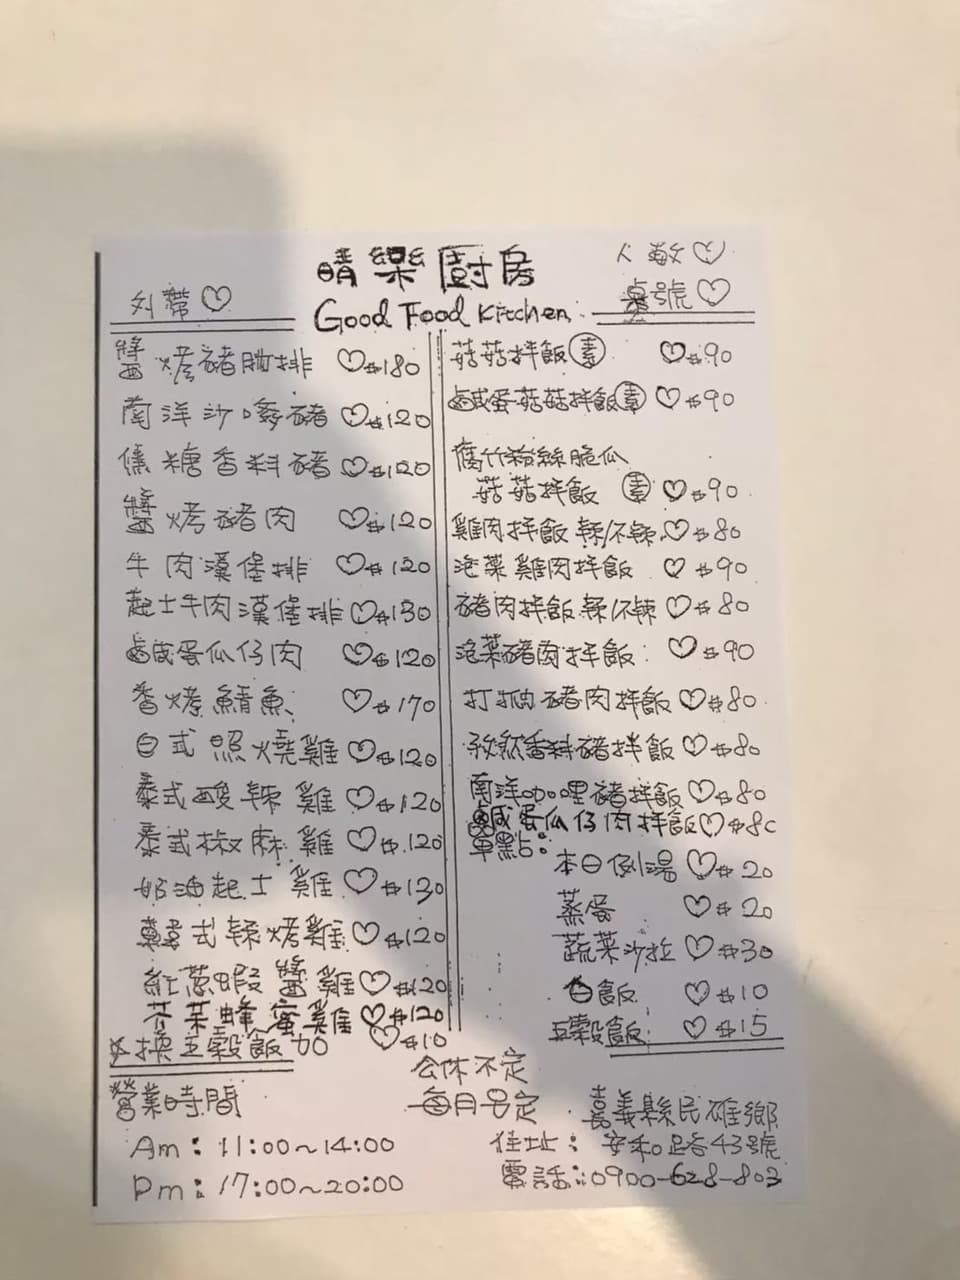 晴樂廚房
Good Food Kitchen
外帶♡
人數♡
桌號♡
醬烤豬肋排 ♡$180
南洋沙嗲豬 ♡$120
焦糖香料豬 ♡$120
醬烤豬肉 ♡$120
牛肉漢堡排 ♡$120
起士牛肉漢堡排♡$130
鹵咸蛋瓜仔肉 ♡$120
香烤鯖魚 ♡$170
日式照燒雞♡$120
泰式酸辣雞♡$120
泰式椒麻雞♡$120
奶油起士雞♡$130
韓式辣烤雞♡$120
紅蔥蝦醬雞♡$120
芥茉蜂蜜雞♡$120
換五穀飯加 ♡$10
菇菇拌飯(素) ♡$90
鹵咸蛋菇菇拌飯(素) ♡$90
腐竹粉絲脆瓜
菇菇拌飯 (素) ♡$90
雞肉拌飯 辣/不辣♡$80
泡菜雞肉拌飯 ♡$90
豬肉拌飯 辣/不辣♡$80
泡菜豬肉拌飯: ♡$90
打拋豬肉拌飯♡$80
孜然香料豬拌飯♡$80
南洋咖哩豬拌飯♡$80
鹹蛋瓜仔肉拌飯♡$80
單點:
本日例湯♡$20
蒸蛋 ♡$20
蔬菜沙拉♡$30
白飯 ♡$10
五穀飯: ♡$15
公休不定
每月另定
營業時間
Am: 11:00~14:00
Pm: 17:00~20:00
嘉義縣民雄鄉
住址: 安和路43號
電話:0900-628-803